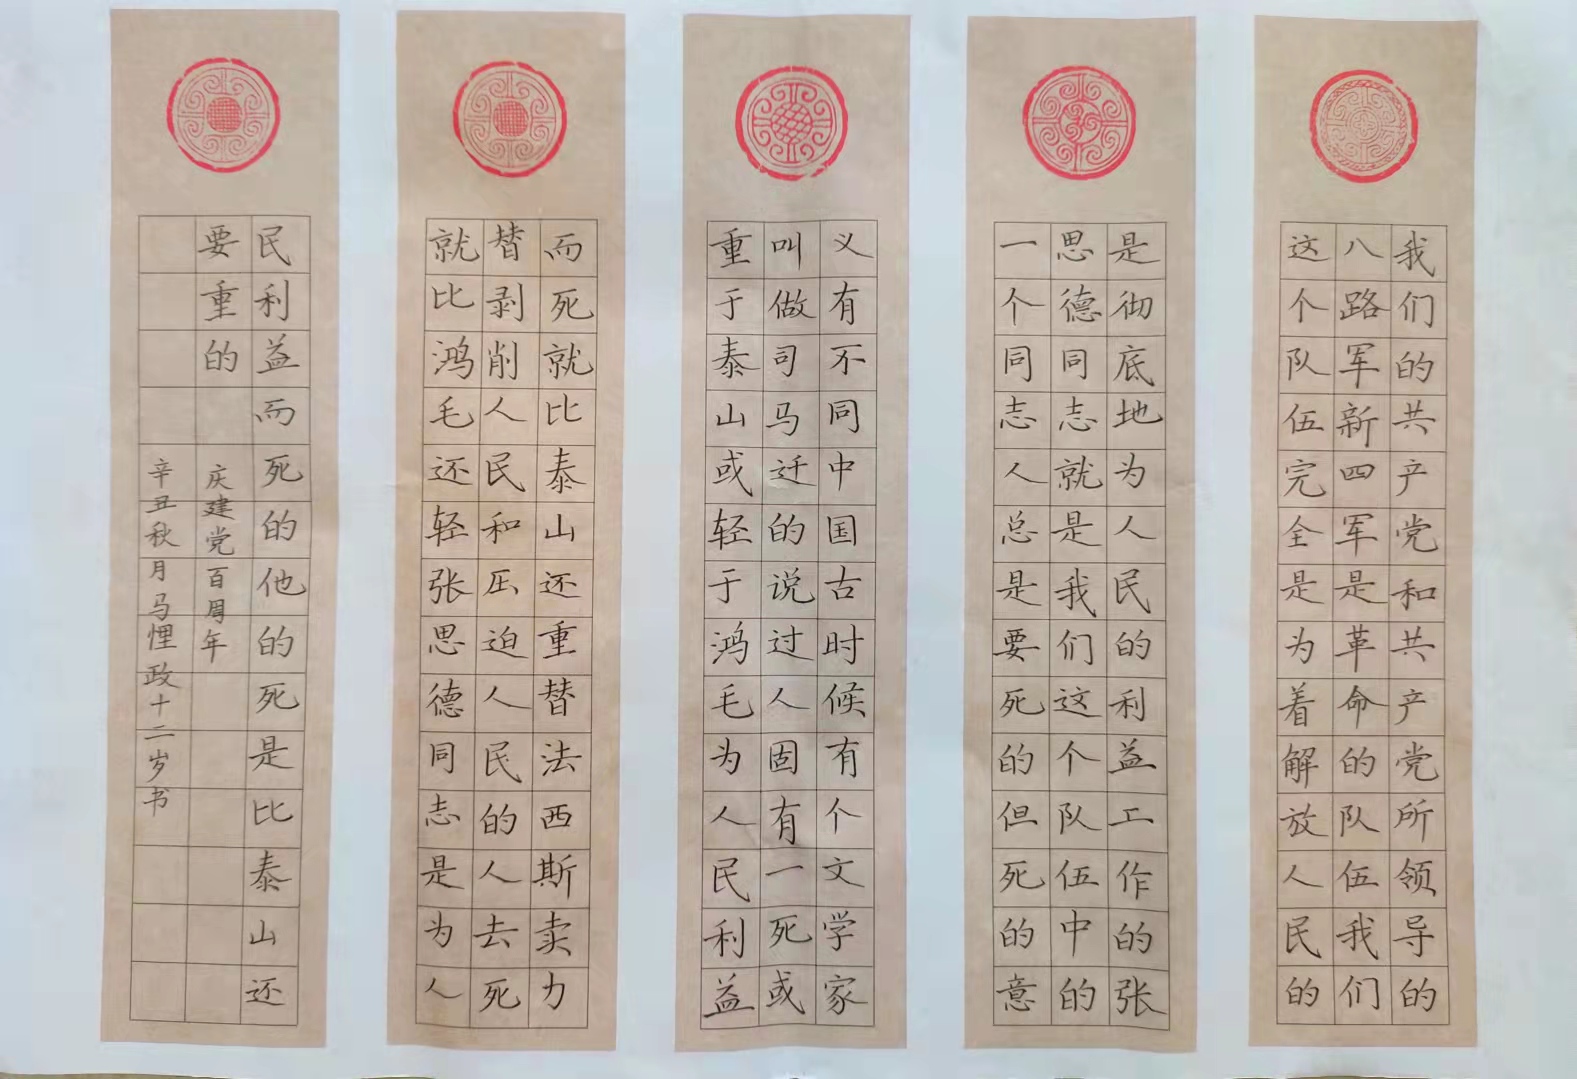 我们的共产党和共产党所领导的
八路军新四军是革命的队伍我们
这个队伍完全是为着解放人民的
是彻底地为人民的利益工作的张
思德同志就是我们这个队伍中的
一个同志人总是要死的但死的意
义有不同中国古时候有个文学家
叫做司马迁的说过人固有一死或
重于泰山或轻于鸿毛为人民利益
而死就比泰山还重替法西斯卖力
替剥削人民和压迫人民的人去死
就比鸿毛还轻张思德同志是为人
民利益而死的他的死是比泰山还
要重的
庆建党百周年
辛丑秋月马悝政十二岁书